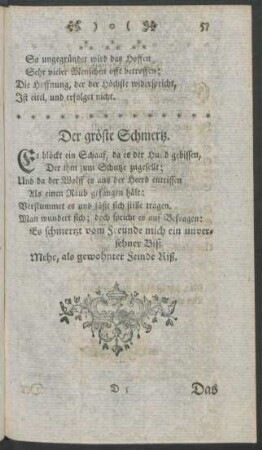 ) o ( 57
So ungegründet wird das Hoffen
Sehr vieler Menschen offt betroffen;
Die Hoffnung, der der Höchste widerspricht,
Ist eitel, und erfolget nicht.
Der gröste Schmertz.
Es blöckt ein Schaaf, da es der Hund gebissen,
Der ihm zum Schutze zugesellt;
Und da der Wolff es aus der Heerd entrissen
Als einen Raub gefangen hält:
Verstummet es und läßt sich stille tragen.
Man wundert sich; doch spricht es auf Befragen:
Es schmertzt vom Freunde mich ein unver-
sehner Biß:
Mehr, als gewohnter Feinde Riß.
D 5 Das